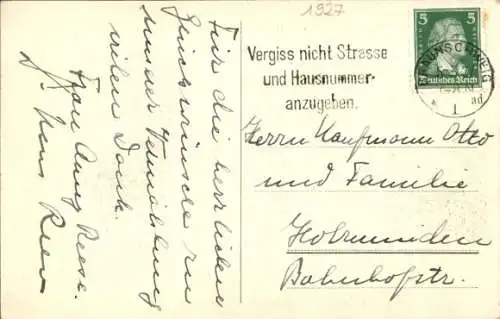 1927
Für die herzlichen
Glückwünsche zu
unserer Vermählung
vielen Dank.
Frau Anny Reese.
Dr. Hans Reese
Vergiss nicht Strasse
und Hausnummer
anzugeben.
BRAUNSCHWEIG
ad
1
5 5
Deutsches Reich
Herrn Kaufmann Otto
und Familie
Holzminden
Bahnhofstr.